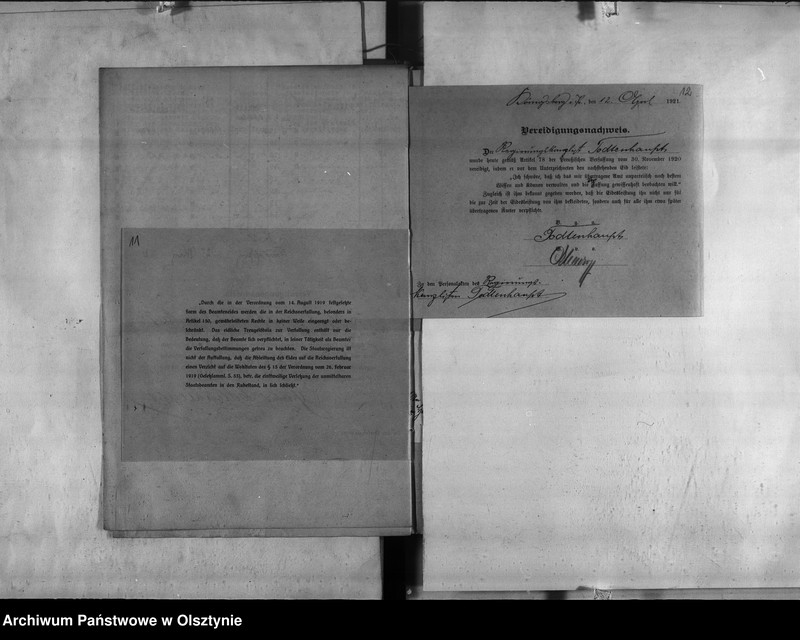 11
„Durch die in der Verordnung vom 14. August 1919 festgesetzte
Form des Beamteneides werden die in der Reichsverfassung, besonders in
Artikel 130, gewährleisteten Rechte in keiner Weise eingeengt oder be-
schränkt. Das eidliche Treugelöbnis zur Verfassung enthält nur die
Bedeutung, daß der Beamte sich verpflichtet, in seiner Tätigkeit als Beamter
die Verfassungsbestimmungen getreu zu beachten. Die Staatsregierung ist
nicht der Auffassung, daß die Ableistung des Eides auf die Reichsverfassung
einen Verzicht auf die Wohltaten des § 15 der Verordnung vom 26. Februar
1919 (Gesetzsamml. S. 33), betr. die einstweilige Versetzung der unmittelbaren
Staatsbeamten in den Ruhestand, in sich schließt.“
12
Königsberg i. Pr., den 12. April 1921.
Vereidigungsnachweis.
Der Regierungskanzlist Todtenhaupt
wurde heute gemäß Artikel 78 der Preußischen Verfassung vom 30. November 1920
vereidigt, indem er vor dem Unterzeichneten den nachstehenden Eid leistete:
„Ich schwöre, daß ich das mir übertragene Amt unparteiisch nach bestem
Wissen und Können verwalten und die Verfassung gewissenhaft beobachten will.“
Zugleich ist ihm bekannt gegeben worden, daß die Eidesleistung ihn nicht nur für
die zur Zeit der Eidesleistung von ihm bekleideten, sondern auch für alle ihm etwa später
übertragenen Ämter verpflichte.
Todtenhaupt
Zu den Personalakten des Regierungs-
kanzlisten Todtenhaupt
Archiwum Państwowe w Olsztynie